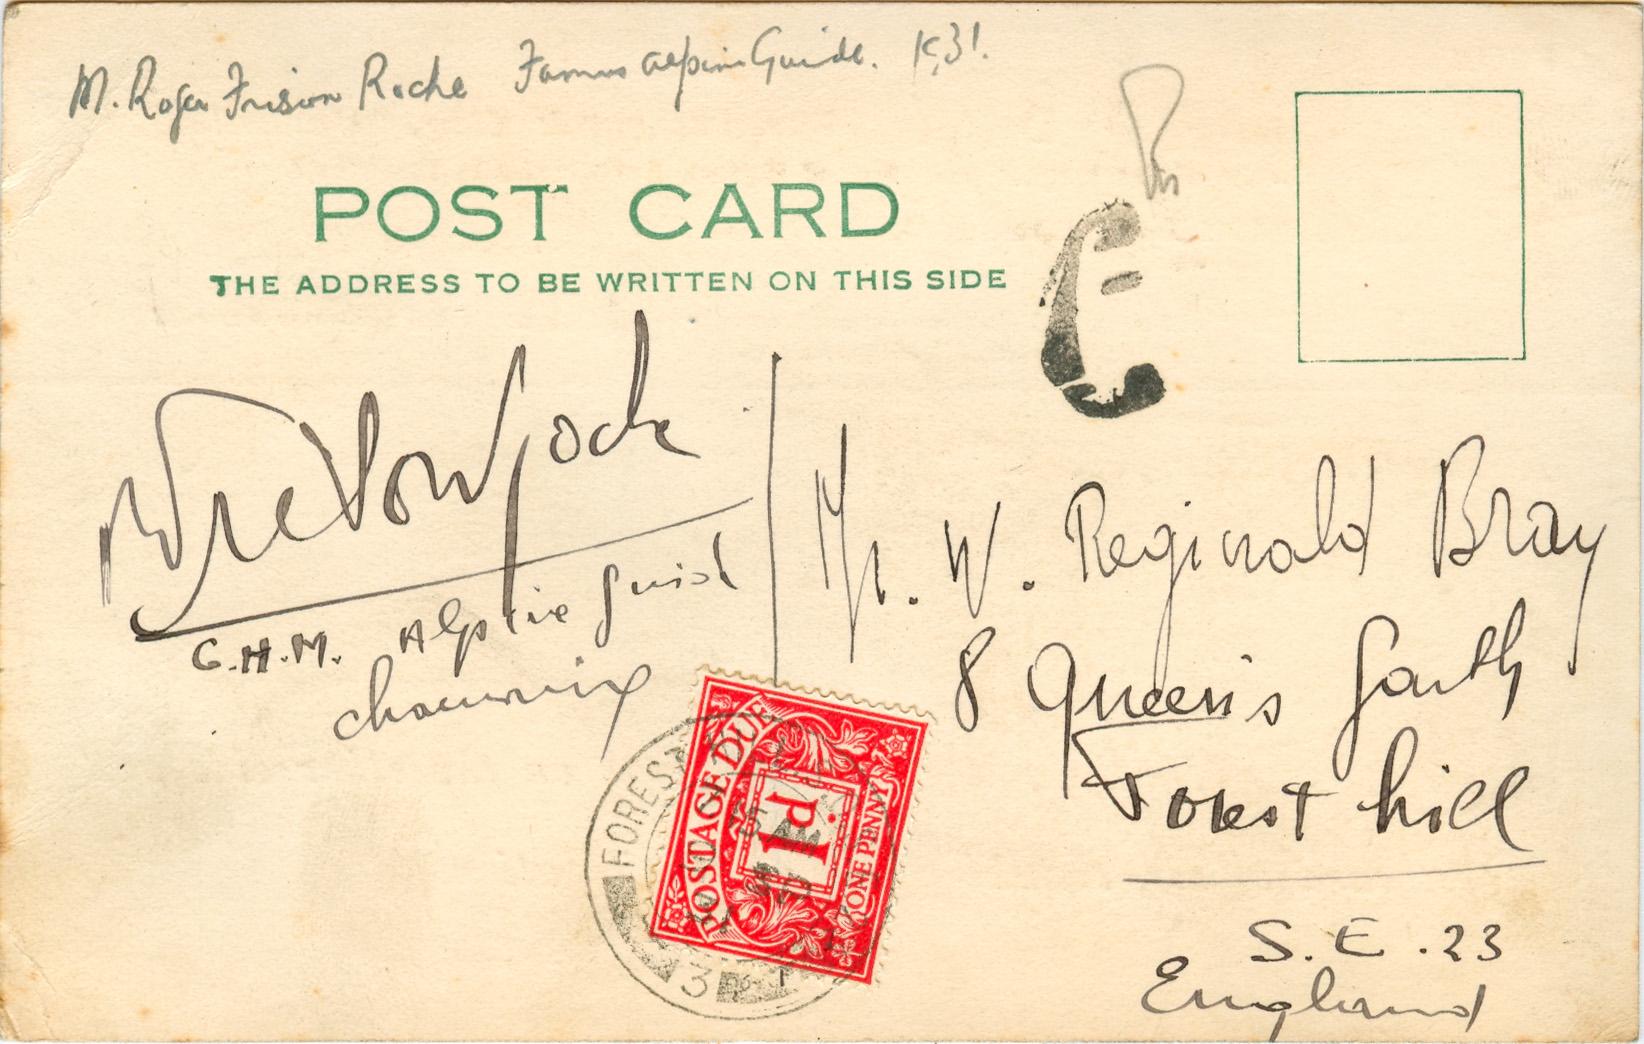 M. Roger Frison Roche Famous Alpine Guide. K.31.
POST CARD
THE ADDRESS TO BE WRITTEN ON THIS SIDE
G.H.M. Alpine guid
chamonix
Mr. W. Reginald Bray
8 Queen's Garth
Forest hill
S.E. 23
England
POSTAGE DUE
1D
ONE PENNY
FOREST
3